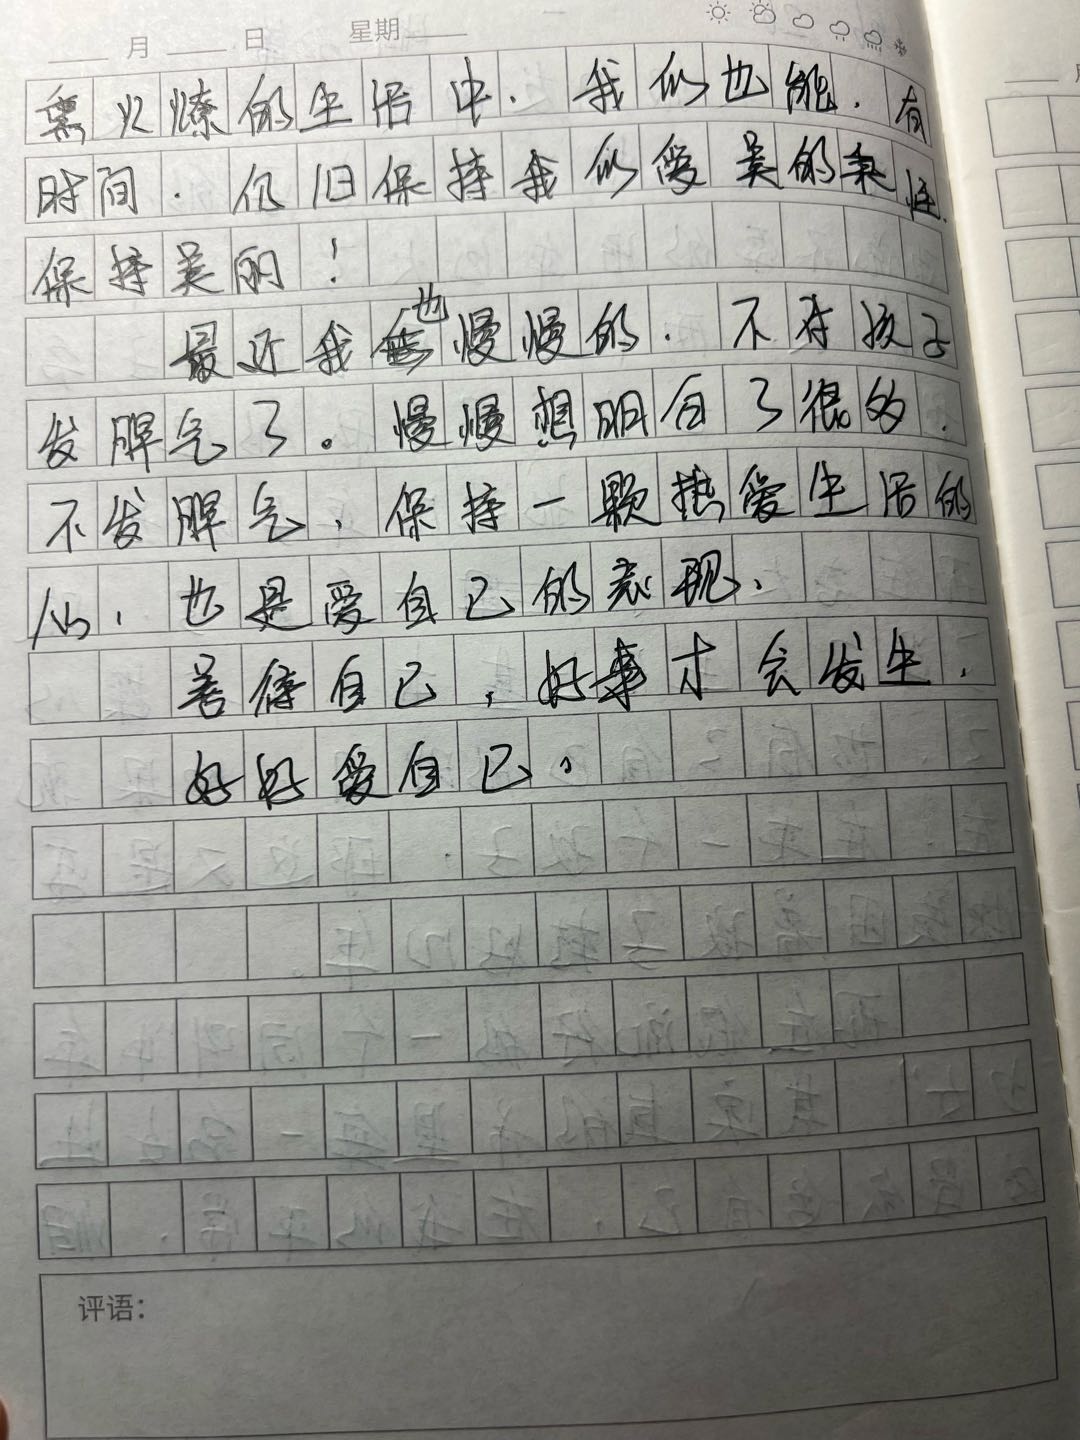 月 日 星期
火燎的生活中.我们也能.有
时间.仍旧保持我们爱美的秉性.
保持美丽!
最近我也慢慢的.不对孩子
发脾气了。慢慢想明白了很多.
不发脾气,保持一颗热爱生活的
心,也是爱自己的表现,
善待自己,好事才会发生,
好好爱自己。
评语: